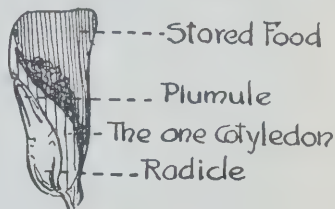 Stored Food
Plumule
The one Cotyledon
Radicle